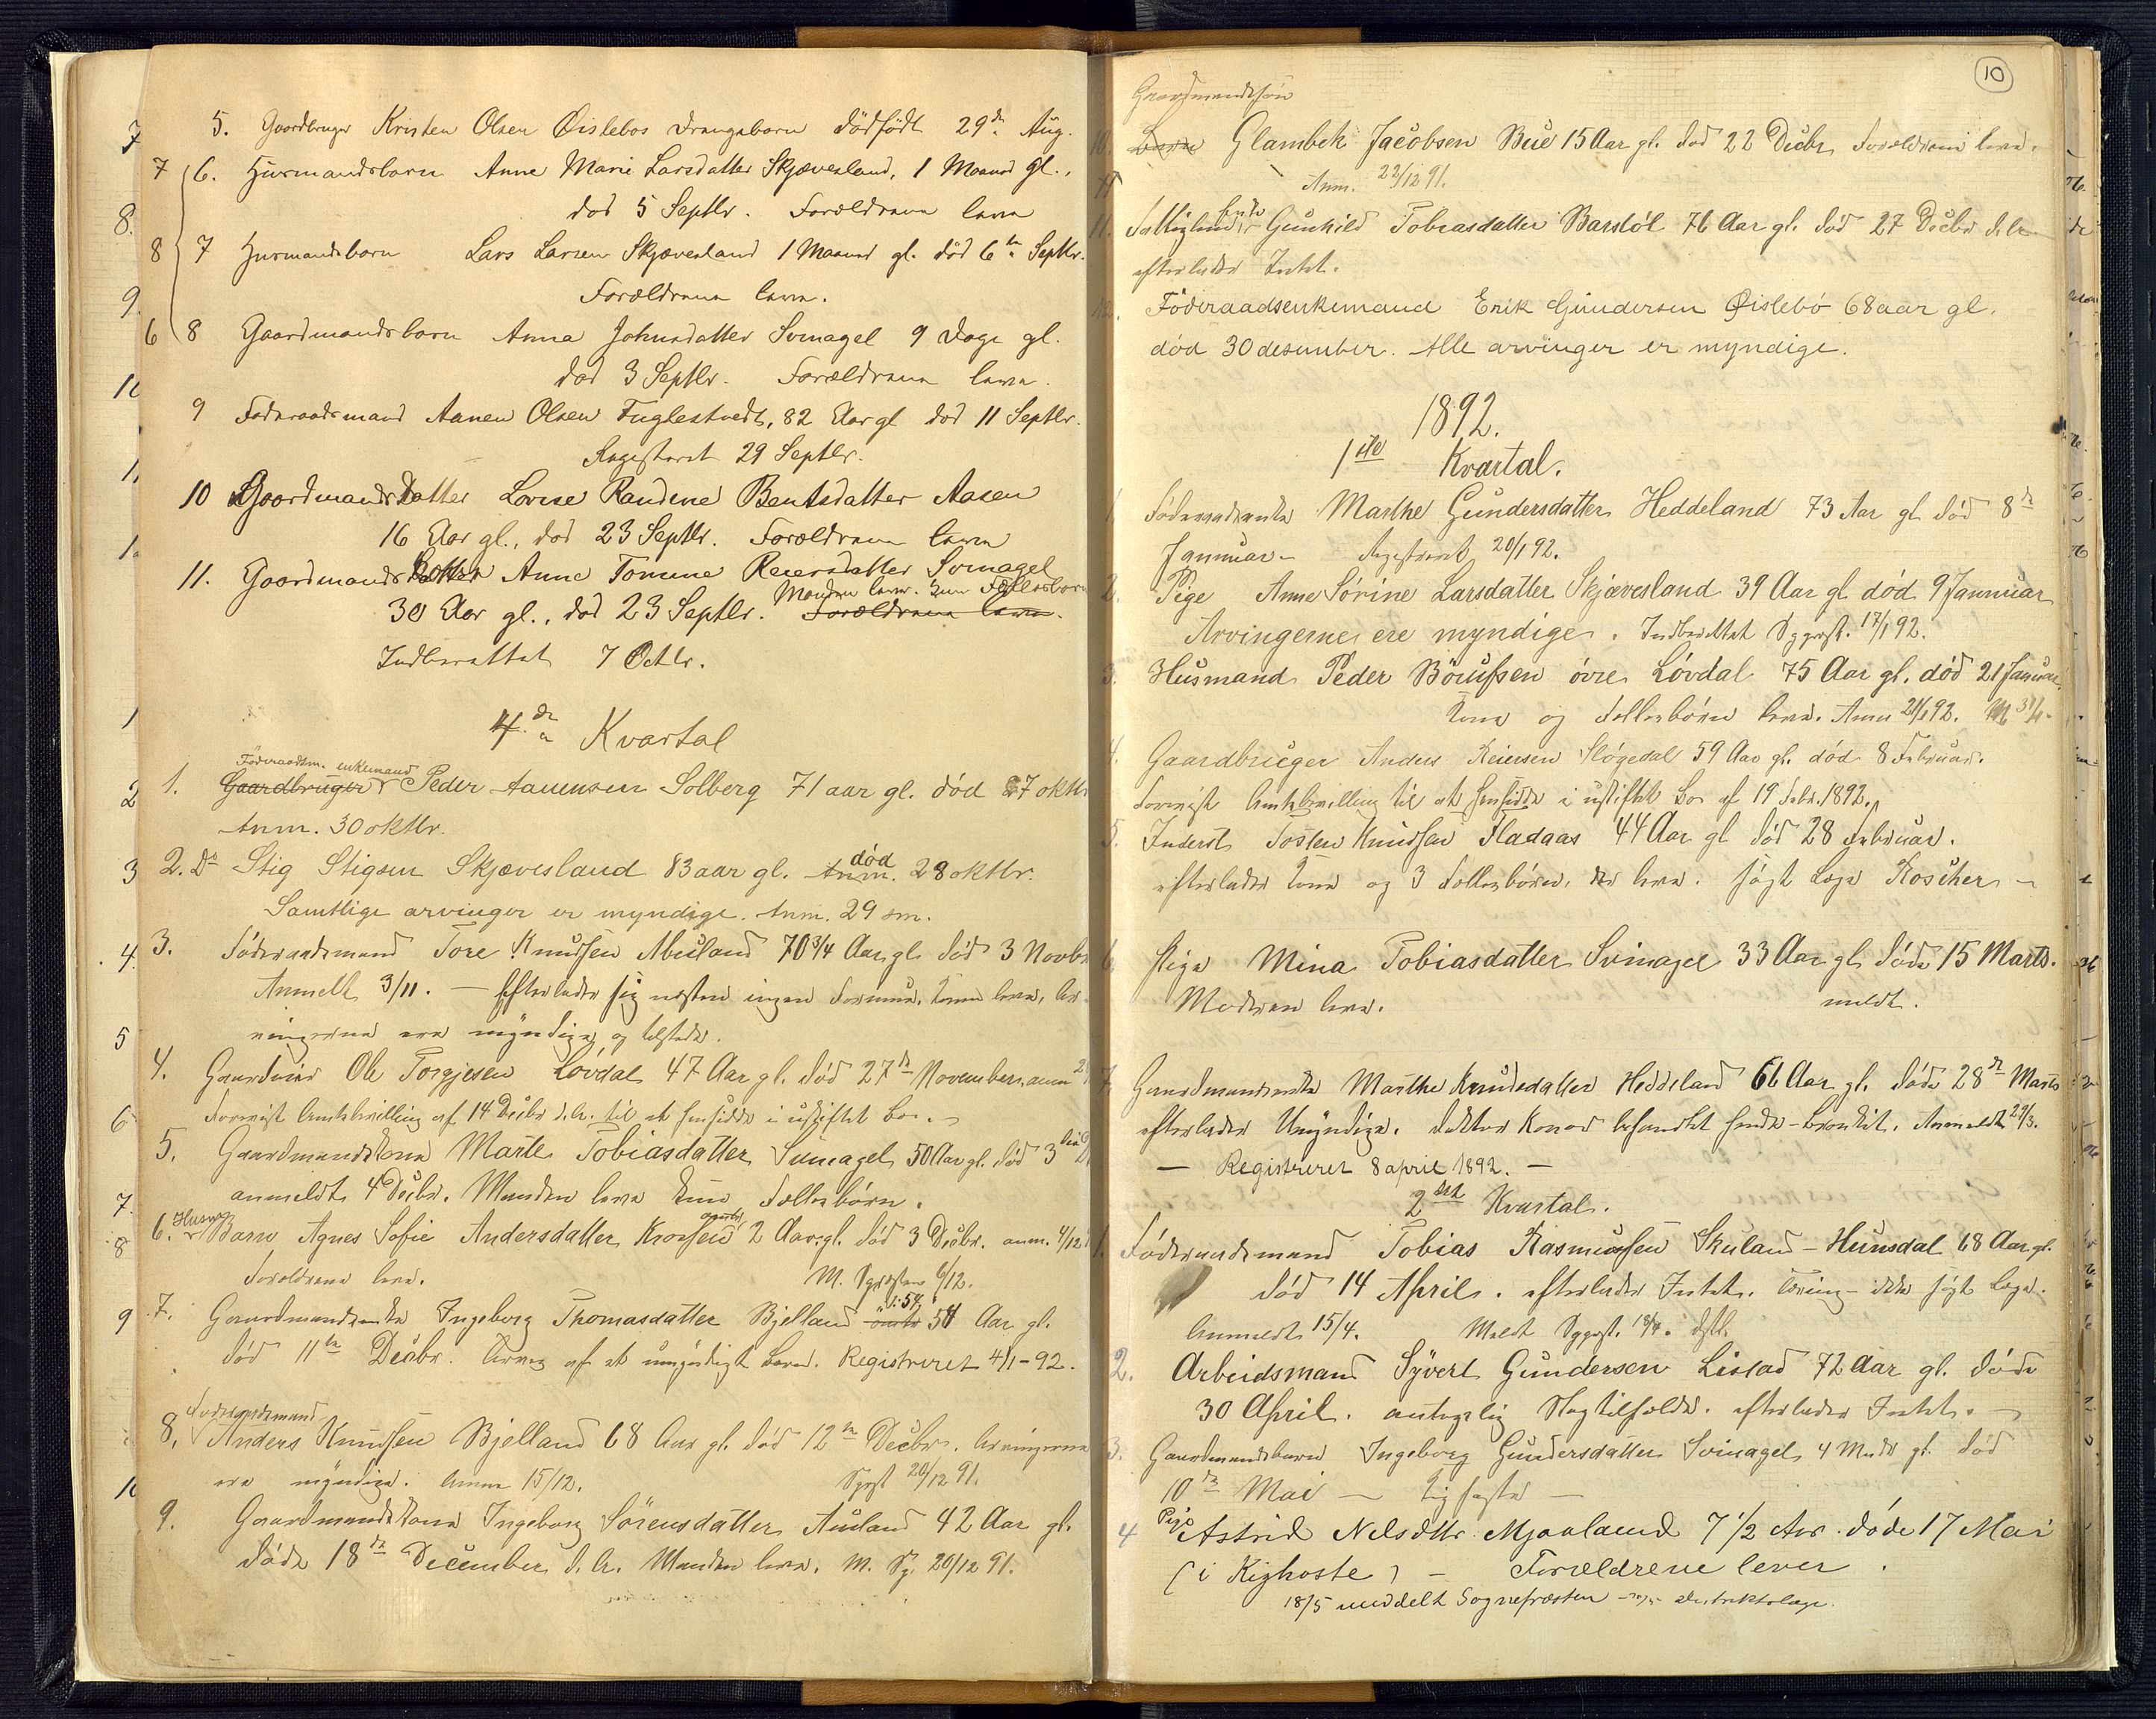 5. Gaardbruger Kristen Olsen Øislebøs Drengebarn dödfödt 29de Aug.
7 6. Husmandsbarn Anne Marie Larsdatter Skjævesland, 1 Maaned gl.,
död 5 Septbr. Forældrene lever
8 7 Husmandsbarn Lars Larsen Skjævesland 1 Maaned gl. död 6te Septbr.
Forældrene lever.
6 8 Gaardmandsbarn Anna Johnsdatter Svinagel 9 Dage gl.
död 3 Septbr. Forældrene lever.
9 Føderaadsmand Aanen Olsen Fuglestvedt, 82 Aar gl död 11 Septbr.
Registeret 29 Septbr.
10 Gaardmandsdatter Lovise Randine Bentsdatter Aasen
16 Aar gl., död 23 Septbr. Forældrene lever
11. Gaardmands Anne Tomine Reiersdatter Svinagel
Manden lever. Kun Fællesbørn
30 Aar gl., död 23 Septbr. Forældrene lever.
Indberettet 7 Octbr.
4de Kvartal
Föderaadsm. enkemand
1. Gaardbruger Peder Aanensen Solberg 71 aar gl. död 27 oktbr
Anm. 30 oktbr.
2. Do Stig Stigsen Skjævesland 83 aar gl. Anm. död 28 oktbr.
Samtlige arvinger er myndige. Anm. 29 sm.
3. Föderaadsmand Tore Knudsen Abusland 70 3/4 Aar gl. död 3 Novbr
Anmeldt 3/11. — Efterlader sig næsten ingen Formue. Kone lever, Ar-
vingerne ere myndige og tilstede.
4. Gaardeier Ole Torgjesen Lövdal 47 Aar gl. död 27de November, anm
Forevist Amtsbevilling af 14 Decbr d.A. til at hensidde i uskiftet Bo.
5. Gaardmandskone Marte Tobiasdatter Svinagel 50 Aar gl. död 3
anmeldt 4 Decbr. Manden lever kun Fællesbörn.
6. Husm. Barn Agnes Sofie Andersdatter 2 Aar gl. död 3 Decbr. anm. 4/12
Forældrene lever. M. Sgpræsten 6/12.
7. Gaardmandsenke Ingeborg Thomasdatter Bjelland 54 Aar gl.
död 11te Decbr. Arving af et umyndigt Barn. Registreret 4/1-92.
Föderaadsmand
8. Anders Knudsen Bjelland 68 Aar gl. död 12te Decbr. Arvingerne
ere myndige. Anm 15/12. Sgpst 20/12 91.
9. Gaardmandskone Ingeborg Sörensdatter Ausland 42 Aar gl.
döde 18de December d.A. Manden lever. M. Sg. 20/12 91.
10
Gaardmandssön
10. Barn Glambek Jacobsen Bue 15 Aar gl. död 22 Decbr Forældrene lever.
Anm. 22/12 91.
11. Fattiglem Gunhild Tobiasdatter Barstöl 76 Aar gl. död 27 Decbr d.A.
efterlader Intet.
12. Föderaadsenkemand Erik Gundersen Øislebö 68 aar gl.
död 30 desember. Alle arvinger er myndige.
1892.
1ste Kvartal.
1. Föderaadsenke Marthe Gundersdatter Heddeland 73 Aar gl död 8de
Januar - Registreret 20/1 92.
2. Pige Anne Sörine Larsdatter Skjævesland 39 Aar gl. död 9 Januar
Arvingerne ere myndige. Indberettet Sgprst. 17/1 92.
3. Husmand Peder Börufsen övre Lövdal 75 Aar gl. död 21 Januar
Kone og Fællesbörn lever. Anm 21/1 92.
4. Gaardbruger Anders Reiersen Slögedal 59 Aar gl. död 8 Februar.
Forevist Amtsbevilling til at hensidde i uskiftet Bo af 19 Febr. 1892.
5. Inderst Tosten Knudsen Fladaas 44 Aar gl död 28 Februar.
efterlader Kone og 3 Fællesbörn, der lever. sögt Læge Roscher -
6. Pige Mina Tobiasdatter Svinagel 33 Aar gl. döde 15 Marts.
Moderen lever. meldt.
7. Gaardmandsenke Marthe Knudsdatter Heddeland 66 Aar gl. döde 28de Marts
efterlader Umyndige. Doktor Konow behandlet hende - Bronkit. Anmeldt 29/3.
— Registreret 8 april 1892. —
2det Kvartal.
1. Föderaadsmand Tobias Rasmussen Skuland - Hunsdal 68 Aar gl.
död 14 April. efterlader Intet. Tæring - ikke sögt Læge.
Anmeldt 15/4. Meldt Sgprst. 18/4.
2. Arbeidsmand Syvert Gundersen Listad 72 Aar gl. döde
30 April. antagelig Slagtilfælde. efterlader Intet. —
3. Gaardmandsbarn Ingeborg Gundersdatter Svinagel 4 Mndr gl. död
10de Mai — Kighoste —
4 Pige Astrid Nelsdtr. Mjaaland 7 1/2 Aar. döde 17 Mai
(i Kighoste) - Forældrene lever.
18/5 meddelt Sognepræsten - distriktslæge.